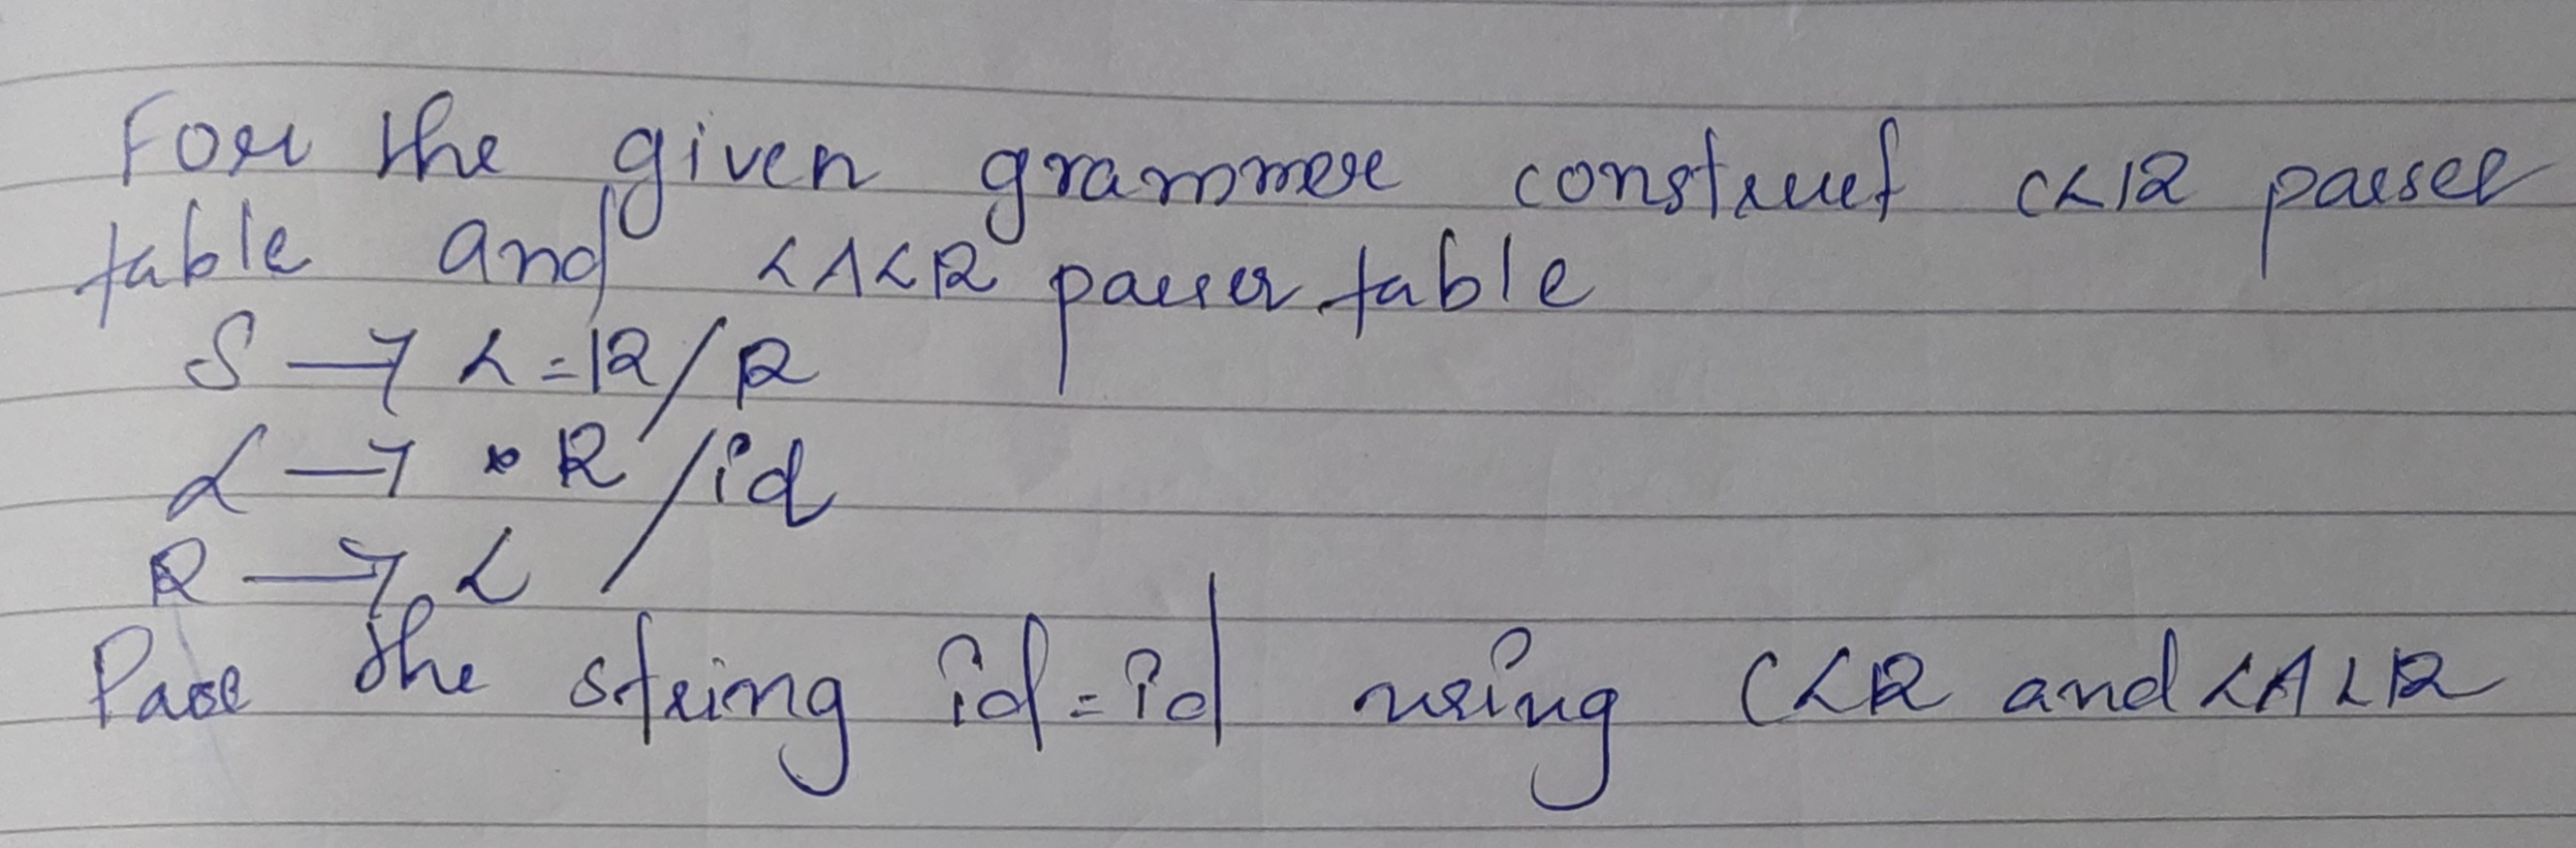 For the given grammer construct CLR parser
table and LALR parser table
S → L=R/R
L → *R/id
R → L
Parse the string id=id using CLR and LALR